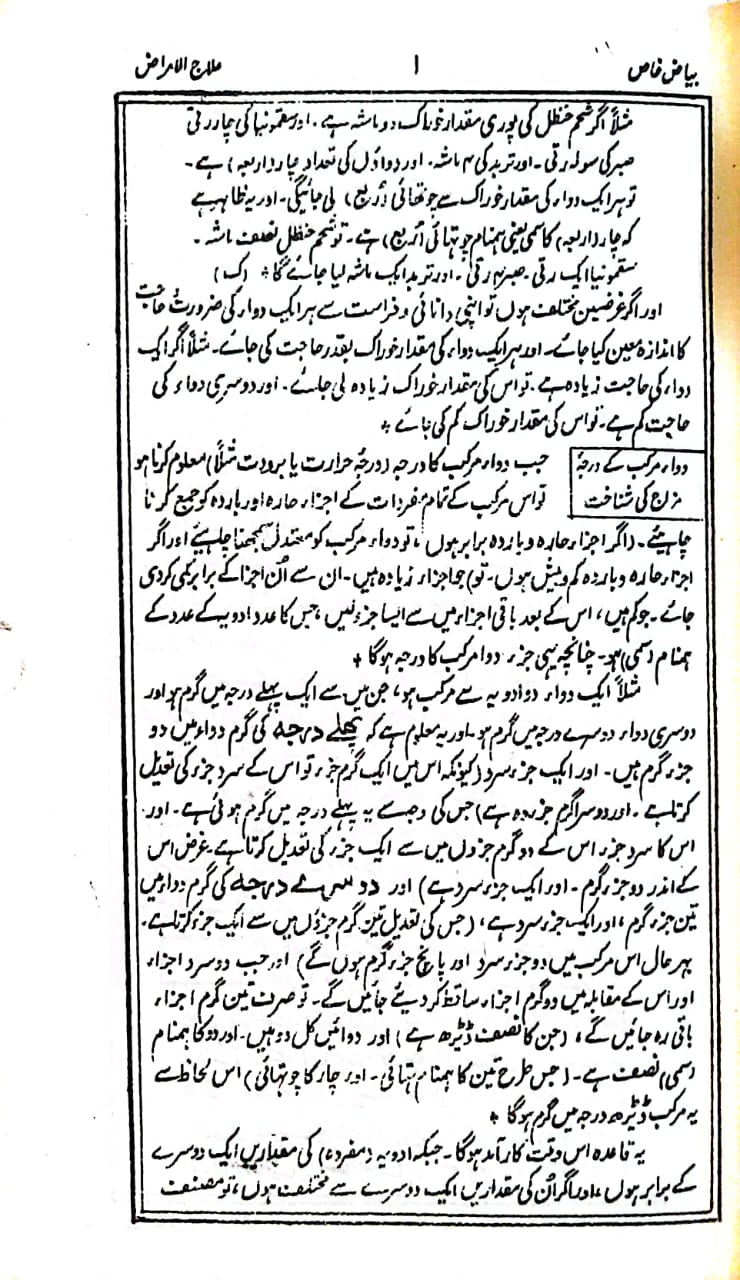 بیاض خاص ۱ علاج الامراض
مثلاً اگر شحم حنظل کی پوری مقدار خوراک دو ماشہ ہے۔ اور سقمونیا کی چار رتی
صبر کی سولہ رتی۔ اور تربد کی ۴ ماشہ۔ اور دواؤں کی تعداد چار (اربعہ) ہے۔
تو ہر ایک دواء کی مقدار خوراک سے چوتھائی (ربع) لی جائیگی۔ اور یہ ظاہر ہے
کہ چار (اربعہ) کا سمی یعنی ہمنام چوتہائی (ربع) ہے۔ تو شحم حنظل نصف ماشہ۔
سقمونیا ایک رتی۔ صبر ۴ رتی۔ اور تربد ایک ماشہ لیا جائے گا * (ک)
اور اگر غرضیں مختلف ہوں تو اپنی دانائی و فراست سے ہر ایک دواء کی ضرورت و حاجت
کا اندازہ معین کیا جائے۔ اور ہر ایک دواء کی مقدار خوراک بقدر حاجت کی جائے۔ مثلاً اگر ایک
دواء کی حاجت زیادہ ہے۔ تو اس کی مقدار خوراک زیادہ لی جائے۔ اور دوسری دواء کی
حاجت کم ہے۔ تو اس کی مقدار خوراک کم کی جائے *
دواء مرکب کے درجۂ
مزاج کی شناخت
جب دواء مرکب کا درجہ (درجۂ حرارت یا برودت مثلاً) معلوم کرنا ہو
تو اس مرکب کے تمام مفردات کے اجزاء حارہ اور باردہ کو جمع کرنا
چاہیئے۔ (اگر اجزاء حارہ و باردہ برابر ہوں، تو دواء مرکب کو معتدل سمجھنا چاہیئے اور اگر
اجزاء حارہ و باردہ کم و بیش ہوں۔ تو) جو اجزاء زیادہ ہیں۔ ان سے اُن اجزا کے برابر کمی کر دی
جائے۔ جو کم ہیں، اس کے بعد باقی اجزاء میں سے ایسا جزء لیں، جس کا عدد ادویہ کے عدد کے
ہمنام (سمی) ہو۔ چنانچہ یہی جزء دوا مرکب کا درجہ ہوگا *
مثلاً ایک دواء دو ادویہ سے مرکب ہو، جن میں سے ایک پہلے درجہ میں گرم ہو اور
دوسری دواء دوسرے درجہ میں گرم ہو۔ اور یہ معلوم ہے کہ پہلے درجہ کی گرم دواء میں دو
جزء گرم ہیں۔ اور ایک جزء سرد (کیونکہ اس میں ایک گرم جزء تو اس کے سرد جزء کی تعدیل
کرتا ہے۔ اور دوسرا گرم جزء وہ ہے) جس کی وجہ سے یہ پہلے درجہ میں گرم ہوئی ہے۔ اور
اس کا سرد جزء اس کے دو گرم جزوں میں سے ایک جزء کی تعدیل کرتا ہے۔ غرض اس
کے اندر دو جزء گرم۔ اور ایک جزء سرد ہے) اور دوسرے درجہ کی گرم دواء میں
تین جزء گرم، اور ایک جزء سرد ہے، (جس کی تعدیل تین گرم جزؤں میں سے ایک جزء کرتا ہے۔
بہر حال اس مرکب میں دو جزء سرد اور پانچ جزء گرم ہوں گے) اور جب دو سرد اجزاء
اور اس کے مقابلہ میں دو گرم اجزاء ساقط کر دیئے جائیں گے۔ تو صرف تین گرم اجزاء
باقی رہ جائیں گے، (جن کا نصف ڈیڑھ ہے) اور دوائیں کل دو ہیں۔ اور دو کا ہمنام
(سمی) نصف ہے۔ (جس طرح تین کا ہمنام تہائی۔ اور چار کا چوتہائی) اس لحاظ سے
یہ مرکب ڈیڑھ درجہ میں گرم ہوگا *
یہ قاعدہ اس وقت کارآمد ہوگا۔ جبکہ ادویہ (مفردہ) کی مقداریں ایک دوسرے
کے برابر ہوں، اور اگر اُن کی مقداریں ایک دوسرے سے مختلف ہوں، تو مصنف